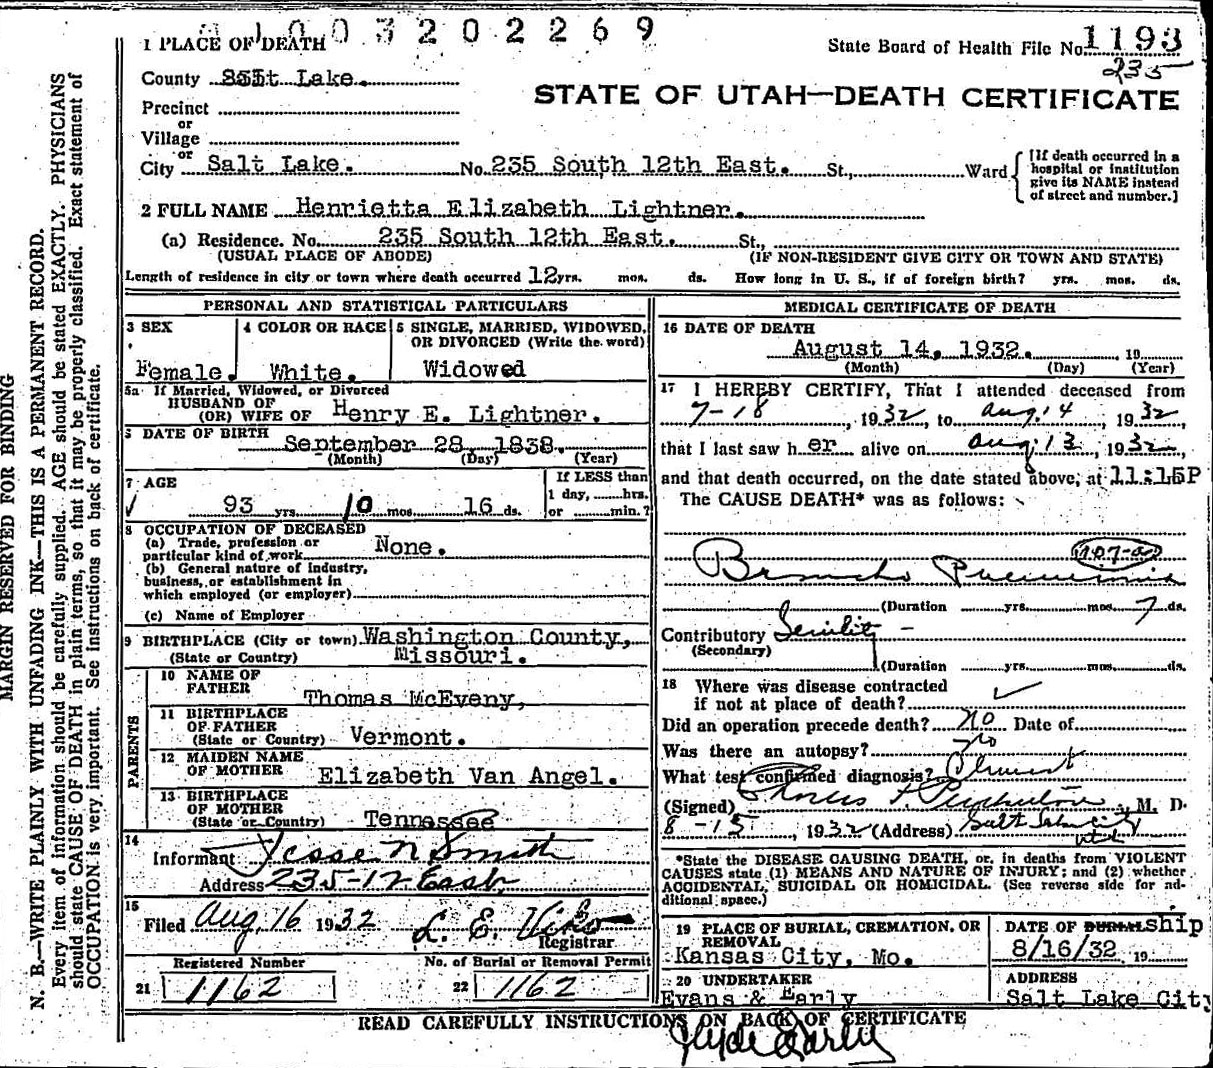 1003202269
1 PLACE OF DEATH
State Board of Health File No. 1193
235
County Salt Lake.
STATE OF UTAH—DEATH CERTIFICATE
Precinct
or
Village
or
City Salt Lake. No. 235 South 12th East. St., Ward
[If death occurred in a
hospital or institution
give its NAME instead
of street and number.]
2 FULL NAME Henrietta Elizabeth Lightner.
(a) Residence. No. 235 South 12th East. St.,
(USUAL PLACE OF ABODE) (IF NON-RESIDENT GIVE CITY OR TOWN AND STATE)
Length of residence in city or town where death occurred 12 yrs. mos. ds. How long in U. S., if of foreign birth? yrs. mos. ds.
PERSONAL AND STATISTICAL PARTICULARS
3 SEX
Female.
4 COLOR OR RACE
White.
5 SINGLE, MARRIED, WIDOWED,
OR DIVORCED (Write the word)
Widowed
5a If Married, Widowed, or Divorced
HUSBAND OF
(OR) WIFE OF Henry E. Lightner.
DATE OF BIRTH September 28, 1838.
(Month) (Day) (Year)
7 AGE
93 yrs. 10 mos. 16 ds.
If LESS than
1 day, hrs.
or min.?
8 OCCUPATION OF DECEASED
(a) Trade, profession or
particular kind of work None.
(b) General nature of industry,
business, or establishment in
which employed (or employer)
(c) Name of Employer
9 BIRTHPLACE (City or town) Washington County,
(State or Country) Missouri.
PARENTS
10 NAME OF
FATHER Thomas McEveny,
11 BIRTHPLACE
OF FATHER
(State or Country) Vermont.
12 MAIDEN NAME
OF MOTHER Elizabeth Van Angel.
13 BIRTHPLACE
OF MOTHER
(State or Country) Tennessee
14
Informant Jesse N Smith
Address 235-12 East
15
Filed Aug. 16 1932 L. E. Viko
Registrar
Registered Number No. of Burial or Removal Permit
21 1162 22 1162
MEDICAL CERTIFICATE OF DEATH
16 DATE OF DEATH
August 14, 1932. 19
(Month) (Day) (Year)
17 I HEREBY CERTIFY, That I attended deceased from
7-18, 1932, to Aug. 14, 1932,
that I last saw her alive on Aug 13, 1932,
and that death occurred, on the date stated above, at 11:15P
The CAUSE DEATH* was as follows:
107-a
Broncho Pneumonia
(Duration yrs. mos. 7 ds.
Contributory Senility -
(Secondary)
(Duration yrs. mos. ds.
18 Where was disease contracted
if not at place of death?
Did an operation precede death? No Date of
Was there an autopsy? No
What test confirmed diagnosis?
(Signed) , M. D.
8-15, 1932 (Address) Salt Lake City
Utah
*State the DISEASE CAUSING DEATH, or, in deaths from VIOLENT
CAUSES state (1) MEANS AND NATURE OF INJURY; and (2) whether
ACCIDENTAL, SUICIDAL OR HOMICIDAL. (See reverse side for ad-
ditional space.)
19 PLACE OF BURIAL, CREMATION, OR
REMOVAL
Kansas City, Mo.
DATE OF BURIAL ship
8/16/32, 19
20 UNDERTAKER
Evans & Early
ADDRESS
Salt Lake City
READ CAREFULLY INSTRUCTIONS ON BACK OF CERTIFICATE
Clyde Early
MARGIN RESERVED FOR BINDING
N. B.—WRITE PLAINLY WITH UNFADING INK—THIS IS A PERMANENT RECORD.
Every item of information should be carefully supplied. AGE should be stated EXACTLY. PHYSICIANS
should state CAUSE OF DEATH in plain terms, so that it may be properly classified. Exact statement of
OCCUPATION is very important. See instructions on back of certificate.